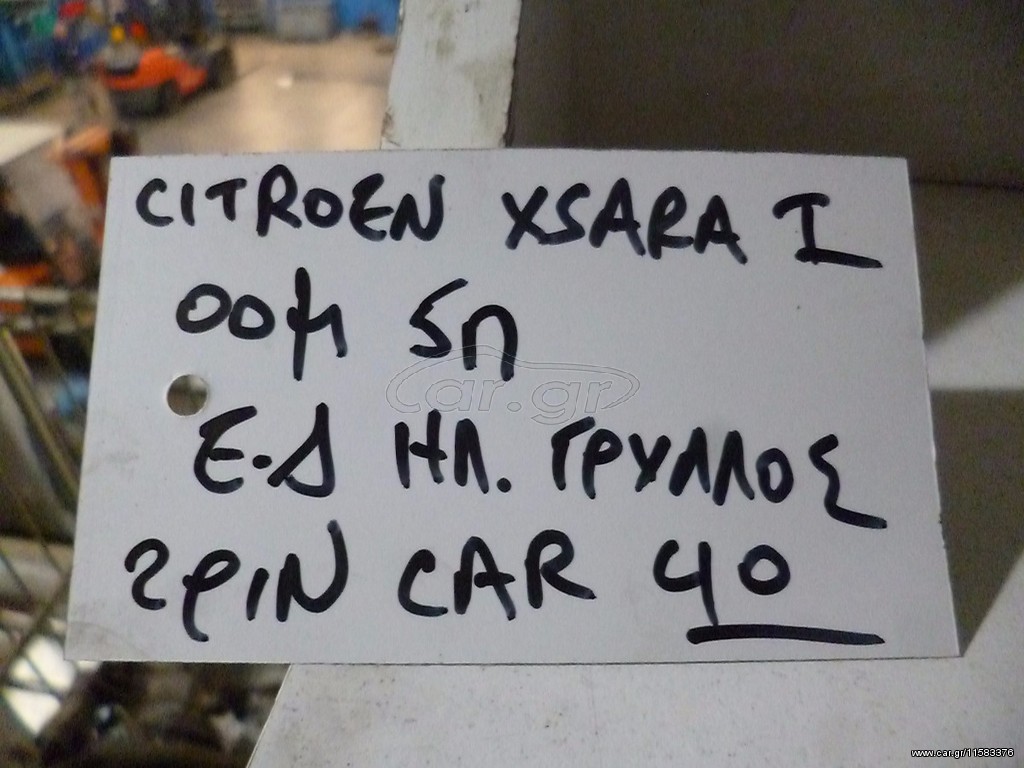 CITROEN XSARA I
00μ 5π
Ε.Δ ΗΛ. ΓΡΥΛΛΟΣ
2φIN CAR 40
car.gr
www.car.gr/11583376